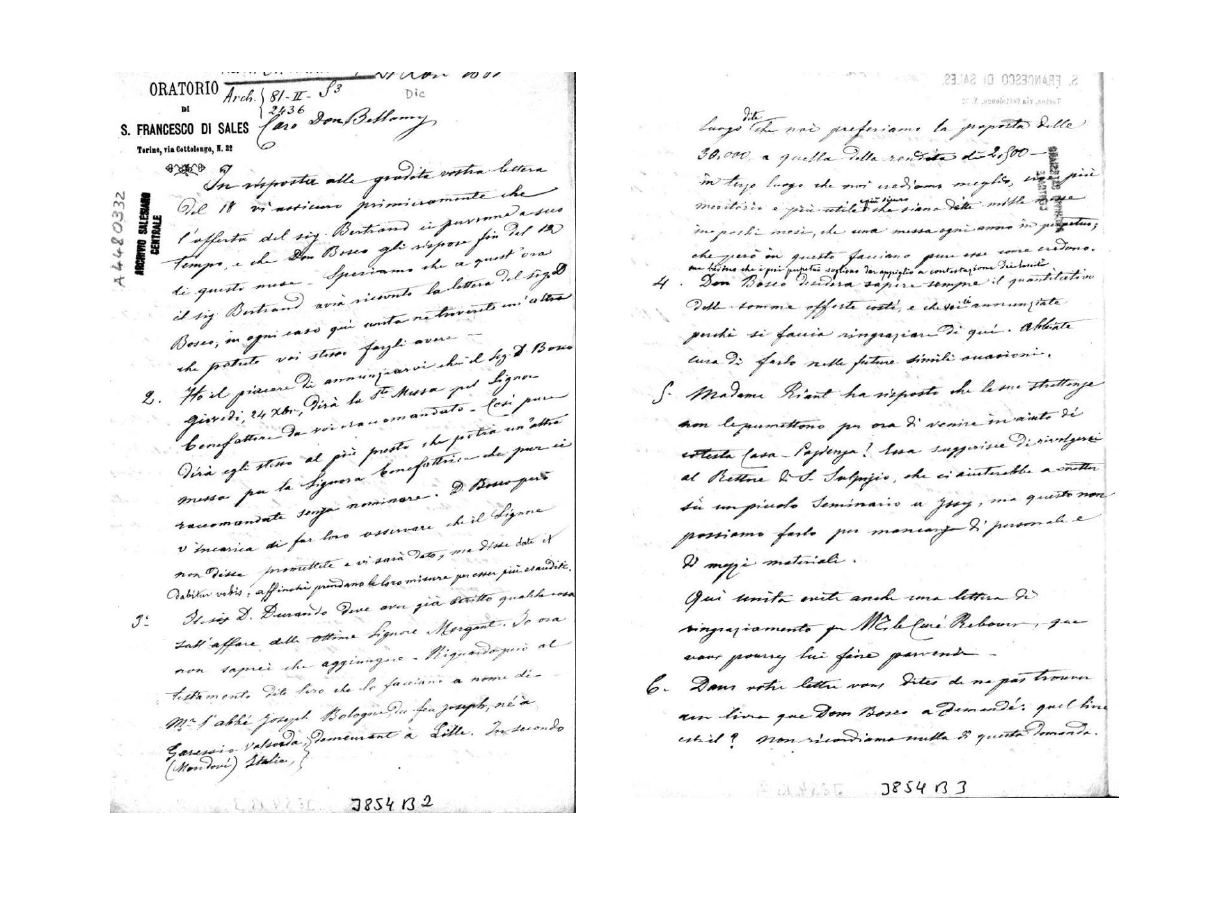 ORATORIO
DI
S. FRANCESCO DI SALES
Torino, via Cottolengo, N. 32
Arch. 81-II- S3
2436
Dic
Caro Don Bellamy
A4480332
ARCHIVIO SALESIANO
CENTRALE
In risposta alla gradita vostra lettera
del 18 vi assicuro primieramente che
l'offerta del sig. Bertrand ci pervenne a suo
tempo, e che Don Bosco gli rispose fin del 12
di questo mese. Speriamo che a quest'ora
il sig. Bertrand avrà ricevuto la lettera del sig. D.
Bosco, in ogni caso qui unita ne troverete un'altra
che potrete voi stesso fargli avere
2. Ho il piacere di annunziarvi che il Sig. D. Bosco
giovedì, 24 Xbre, dirà la Sta Messa pel Signor
benefattore da voi raccomandato. Così pure
dirà egli stesso al più presto che potrà un'altra
messa per la Signora benefattrice che pur ci
raccomandate senza nominare. D. Bosco però
v'incarica di far loro osservare che il Signore
non disse promettete e vi sarà dato, ma disse date et
dabitur vobis; affinché prendano le loro misure per esser più esauditi.
3° Il sig. D. Durando deve aver già scritto qualche cosa
sull'affare delle ottime Signore Morgant. Io ora
non saprei che aggiungere. Riguardo però al
testamento dite loro che lo facciano a nome di
Mr l'abbé Joseph Bologne du feu Joseph, né à
Garessio Valsorda, demeurant à Lille. In secondo
(Mondovì) Italie,
J854 B 2
luogo dite che noi preferiamo la proposta delle
30,000, a quella della rendita di 2,500
in terzo luogo che noi crediamo meglio, più
meritorio e più utile che siano dette mille messe
in pochi mesi, che una messa ogni anno in perpetuo;
che però in questo facciano pure esse come credono.
4. Don Bosco desidera sapere sempre il quantitativo
delle somme offerte costì, e che voi annunziate
perché si faccia ringraziare di qui. Abbiate
cura di farlo nelle future simili occasioni.
5. Madame Riant ha risposto che le sue strettezze
non le permettono per ora di venire in aiuto di
cotesta Casa. Pazienza! Essa suggerisce di rivolgersi
al Rettore di S. Sulpizio, che ci aiuterebbe a metter
sù un piccolo Seminario a Issy, ma questo non
possiamo farlo per mancanza di personale e
di mezzi materiali.
Qui unita avete anche una lettera di
ringraziamento per Mr le Curé Rebours, que
vous pourrez lui faire parvenir
6. Dans votre lettre vous dites de ne pas trouver
un livre que Dom Bosco a demandé: quel livre
est-il? Non ricordiamo nulla di questa domanda.
J854 B 3